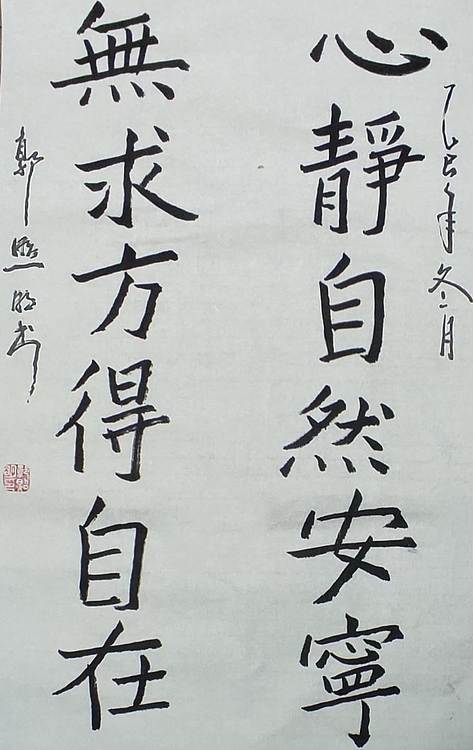 乙巳年冬月
心靜自然安寧
無求方得自在
郭照明书